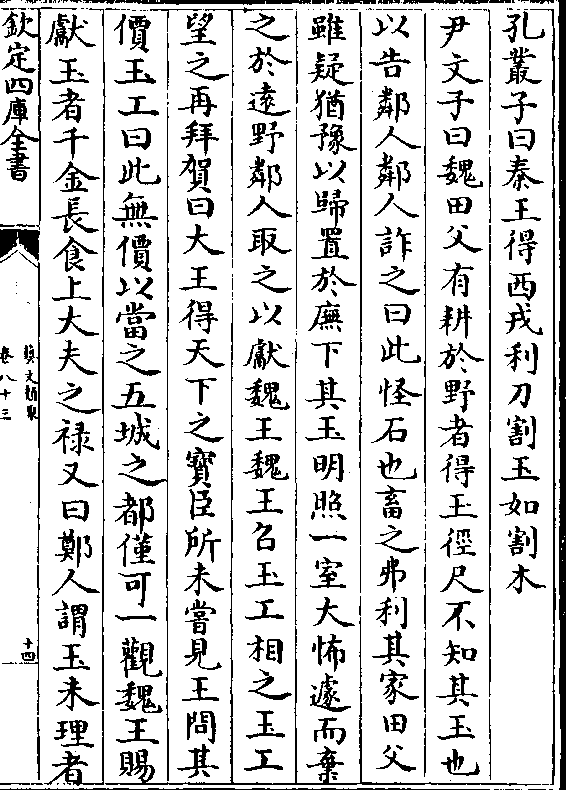 孔叢子曰秦王得西戎利刀割玉如割木
尹文子曰魏田父有耕於野者得玉徑尺不知其玉也
以告鄰人鄰人詐之曰此怪石也畜之弗利其家田父
雖疑猶豫以歸置於廡下其玉明照一室大怖遽而棄
之於遠野鄰人取之以獻魏王魏王召玉工相之玉工
望之再拜賀曰大王得天下之寶臣所未嘗見王問其
價玉工曰此無價以當之五城之都僅可一觀魏王賜
獻玉者千金長食上大夫之禄又曰鄭人謂玉未理者
欽定四庫全書
藝文類聚
卷八十三
十四